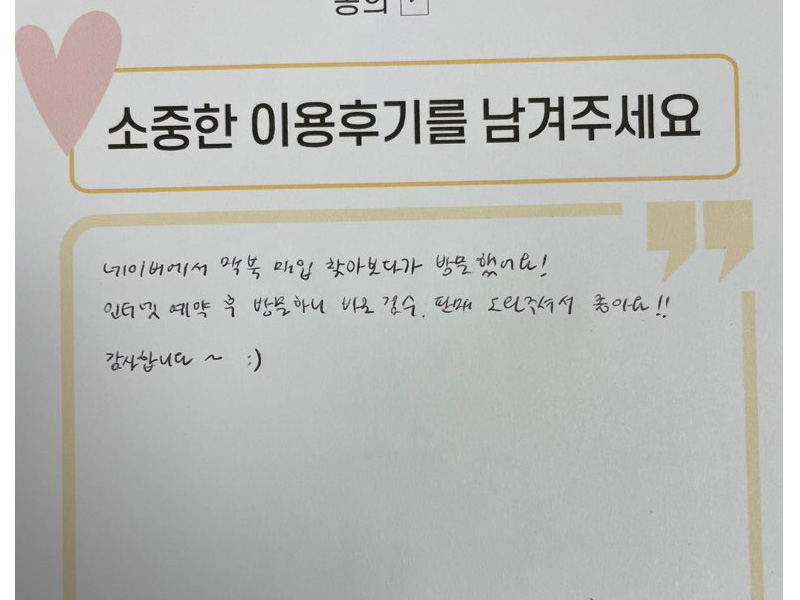 동의
소중한 이용후기를 남겨주세요
네이버에서 맥북 매입 찾아보다가 방문했어요!
인터넷 예약 후 방문하니 바로 검수, 판매 도와주셔서 좋아요!!
감사합니다 ~ :)